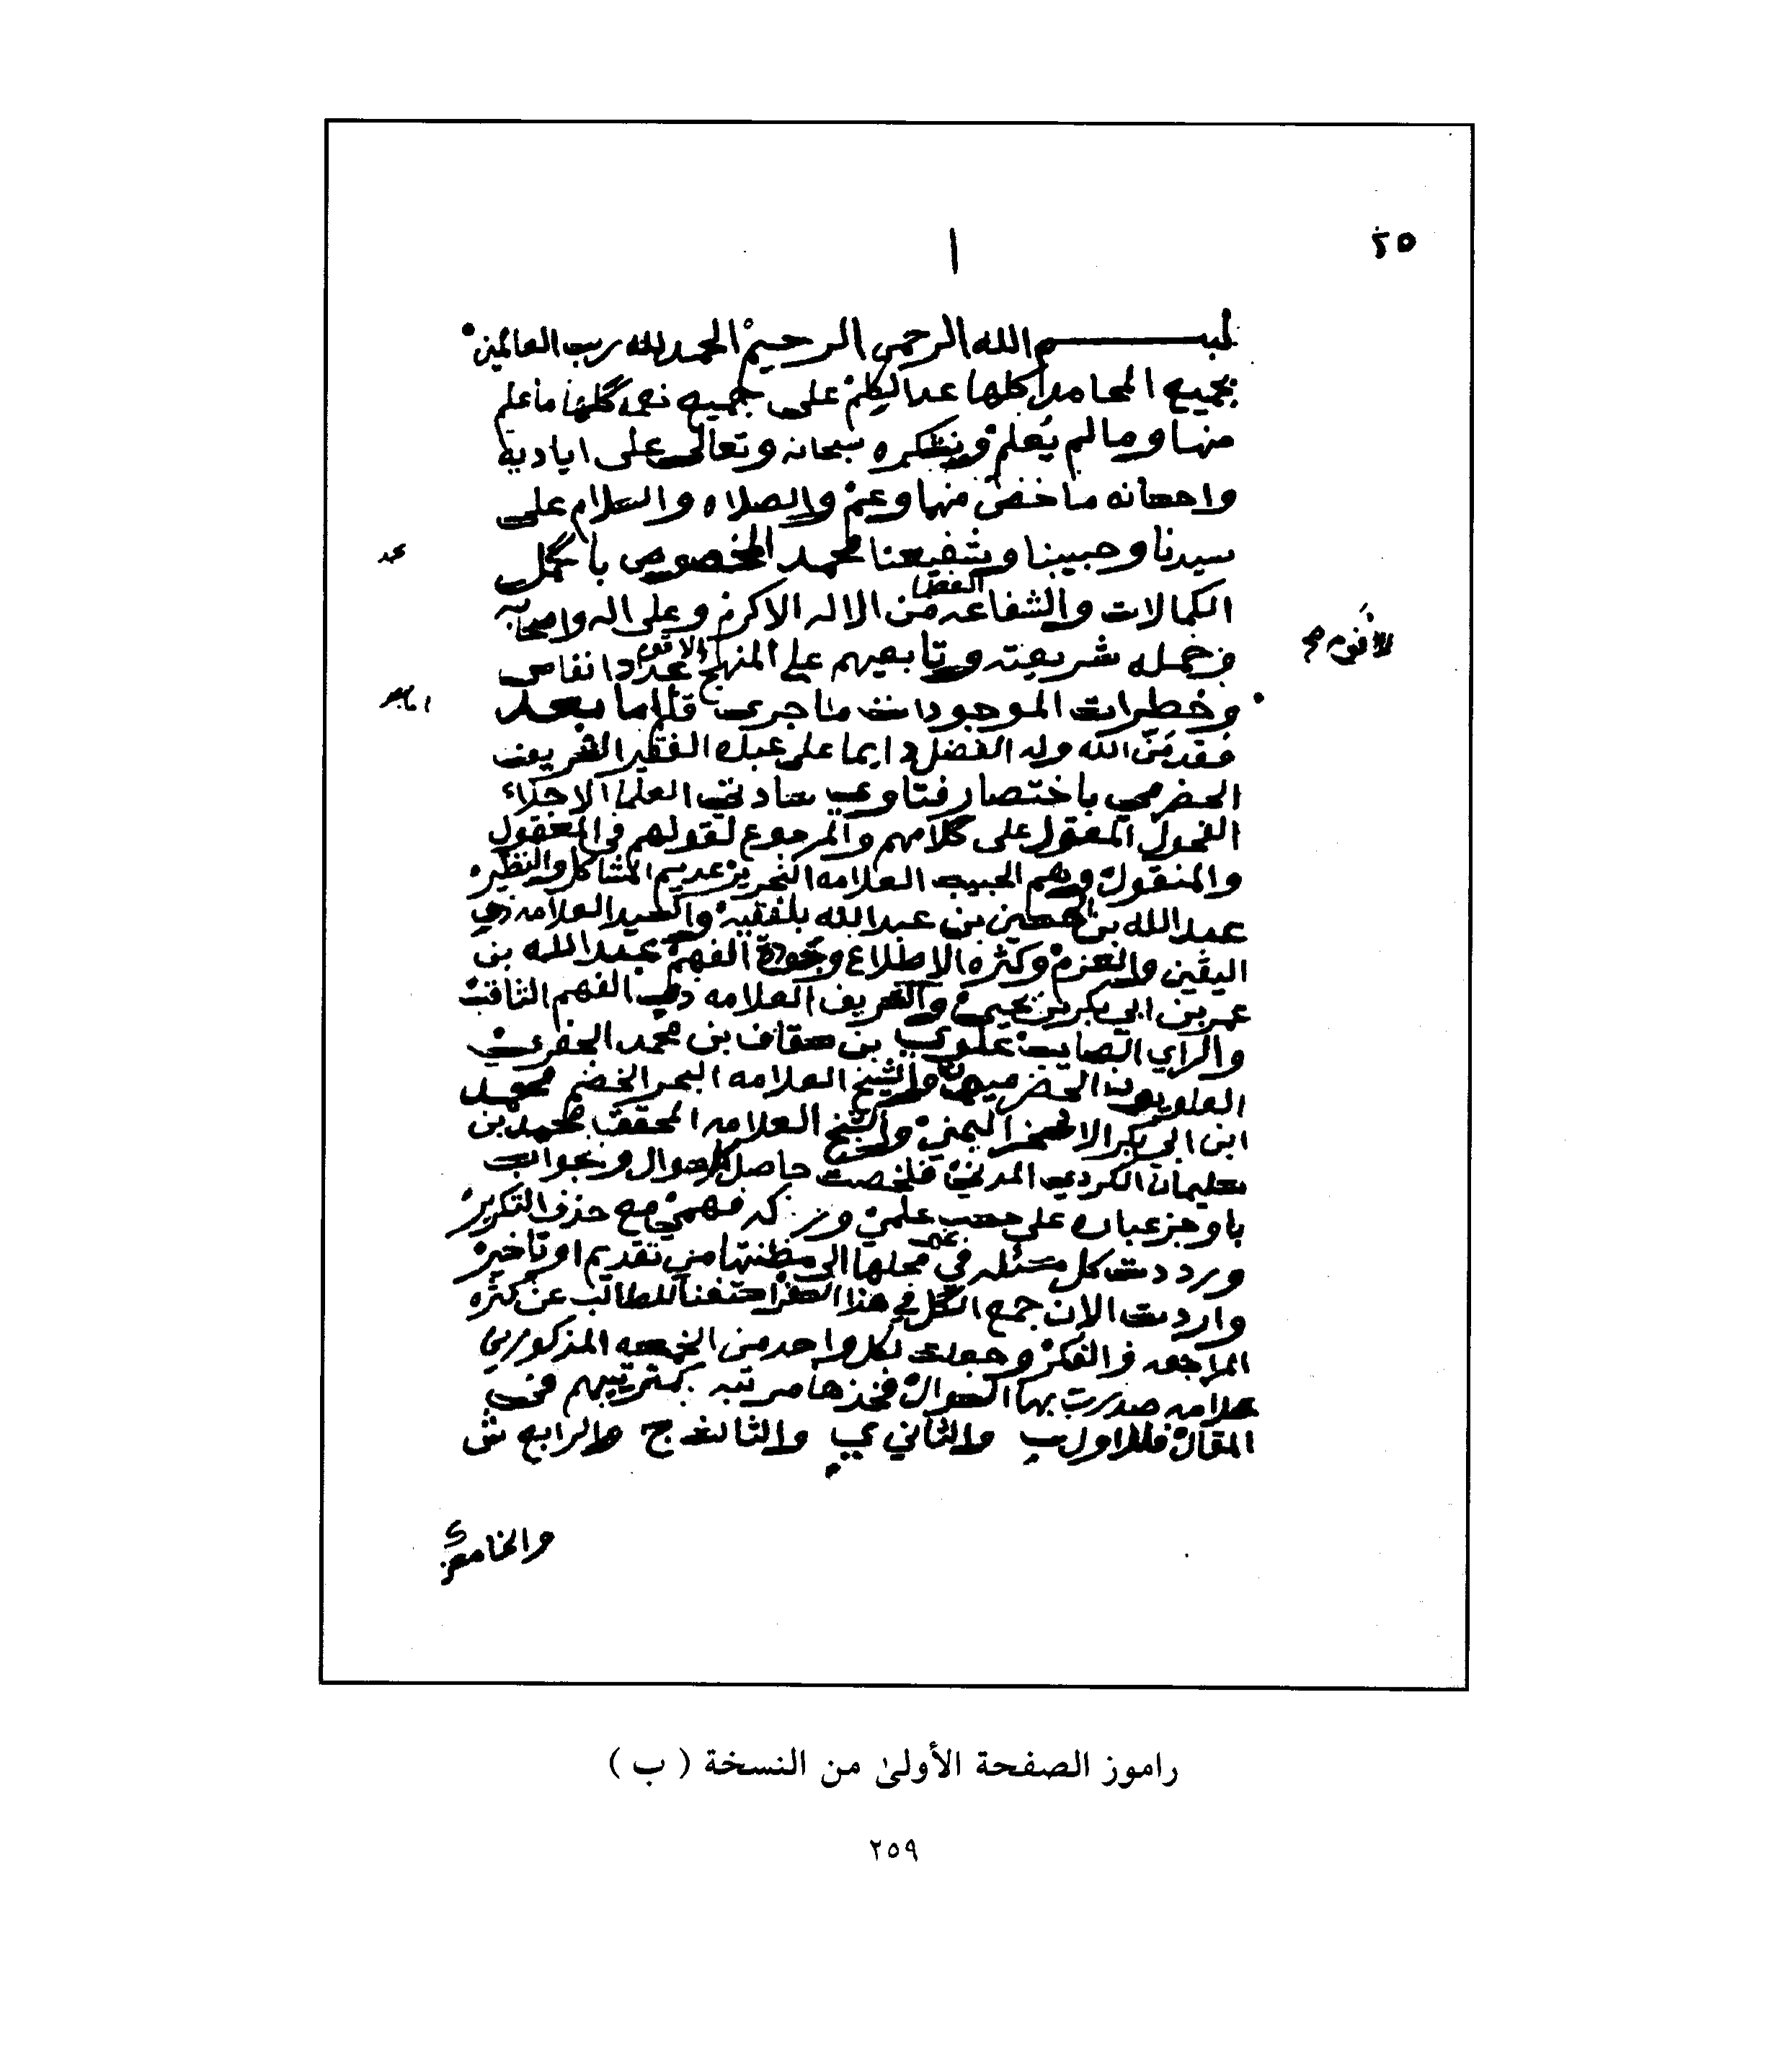 ٢٥
١
بسم الله الرحمن الرحيم الحمد لله رب العالمين
بجميع المحامد كلها عدد الكلم على جميع نعمه كلها ما علم
منها وما لم يُعلم ونشكره سبحانه وتعالى على اياديه
واحسانه ما خص منها وعم والصلاه والسلام على
سيدنا وحبيبنا وشفيعنا محمد المخصوص باكمل
محمد
الكمالات والشفاعه العظمى من الاله الاكرم وعلى اله واصحابه
وحمله شريعته وتابعيهم على المنهج الاقوم عدد انفاس
الاقوم صح
وخطرات الموجودات ما جرى قلم اما بعد
اما بعد
فقد مَنّ الله وله الفضل دايما على عبده الفقير الشريف
الحضرمي باختصار فتاوي ساداتي العلما الاجلاء
الفحول المعول على كلامهم والمرجوع لقولهم في المعقول
والمنقول وهم الحبيب العلامه النحرير عديم المشاكل والنظير
عبدالله بن الحسين بن عبدالله بلفقيه والسيد العلامه ذي
اليقين والعزم وكثره الاطلاع وجودة الفهم عبدالله بن
عمر بن ابي بكر بن يحيى والشريف العلامه ذي الفهم الثاقب
والراي الصايب علوي بن سقاف بن محمد الجفري
العلويون الحضرميون والشيخ العلامه البحر الخضم محمد
ابن ابي بكر الاشخر اليمني والشيخ العلامه المحقق محمد بن
سليمان الكردي المدني فلخصت حاصل كل سوال وجواب
باوجز عباره على حسب علمي وركه فهمي مع حذف التكرير
ورددت كل مسئله في غير محلها الى مظنتها من تقديم او تاخير
واردت الان جمع الكل في هذا السفر استغنا للطالب عن كثره
المراجعه والفكر وجعلت لكل واحد من الخمسه المذكورين
علامه صدرت بها السوال فخذها مرتبه كترتيبهم في
المقال فللاول ب والثاني ي والثالث ج والرابع ش
والخامس ك
راموز الصفحة الأولىٰ من النسخة ( ب )
٢٥٩